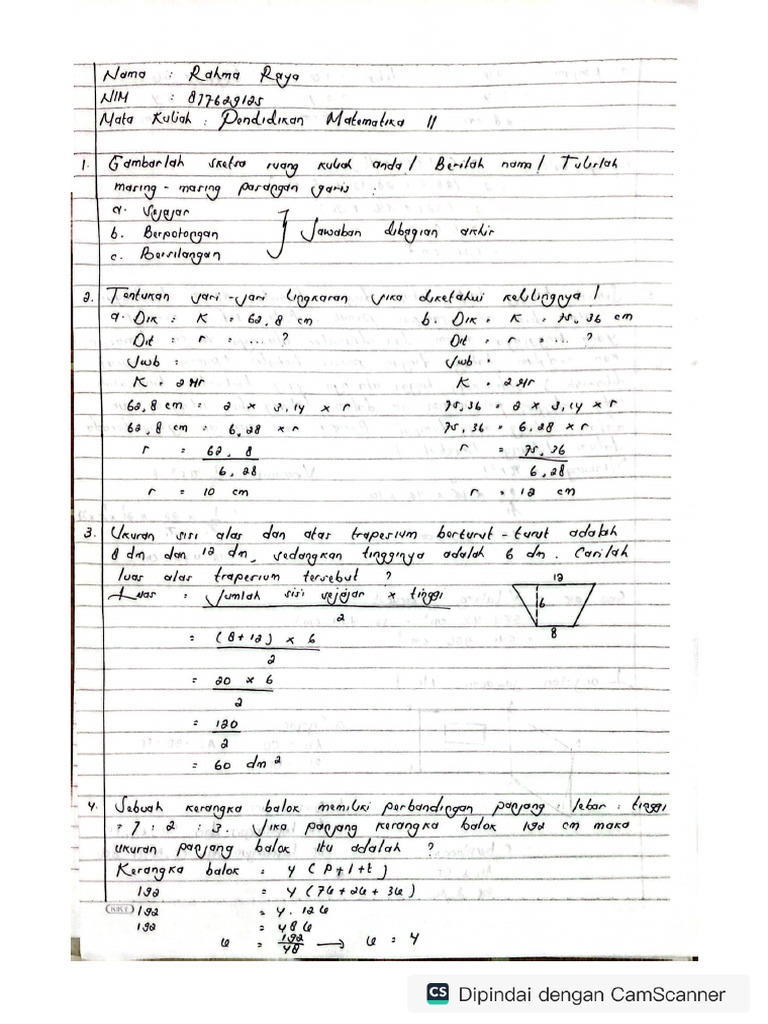 Nama : Rahma Raya
NIM : 877629125
Mata Kuliah : Pendidikan Matematika II
1. Gambarlah sketsa ruang kuliah anda / Berilah nama / Tulislah
masing - masing pasangan garis :
a. Sejajar
b. Berpotongan } Jawaban dibagian akhir
c. Bersilangan
2. Tentukan jari - jari lingkaran jika diketahui kelilingnya !
a. Dik : K = 62,8 cm b. Dik : K = 75,36 cm
Dit : r = .... ? Dit : r = ... ?
Jwb : Jwb :
K = 2πr K = 2πr
62,8 cm = 2 x 3,14 x r 75,36 = 2 x 3,14 x r
62,8 cm = 6,28 x r 75,36 = 6,28 x r
r = 62,8 r = 75,36
6,28 6,28
r = 10 cm r = 12 cm
3. Ukuran sisi alas dan atas trapesium berturut - turut adalah
8 dm dan 12 dm, sedangkan tingginya adalah 6 dm. Carilah
luas alas trapesium tersebut ?
Luas = Jumlah sisi sejajar x tinggi
2
12
6
8
= (8+12) x 6
2
= 20 x 6
2
= 120
2
= 60 dm²
4. Sebuah kerangka balok memiliki perbandingan panjang : lebar : tinggi
= 7 : 2 : 3. Jika panjang kerangka balok 192 cm maka
ukuran panjang balok itu adalah ?
Kerangka balok = 4 (p+l+t)
192 = 4 (76+26+36)
KIKY
192 = 4. 126
192 = 486
6 = 192 → 6 = 4
48
CS Dipindai dengan CamScanner